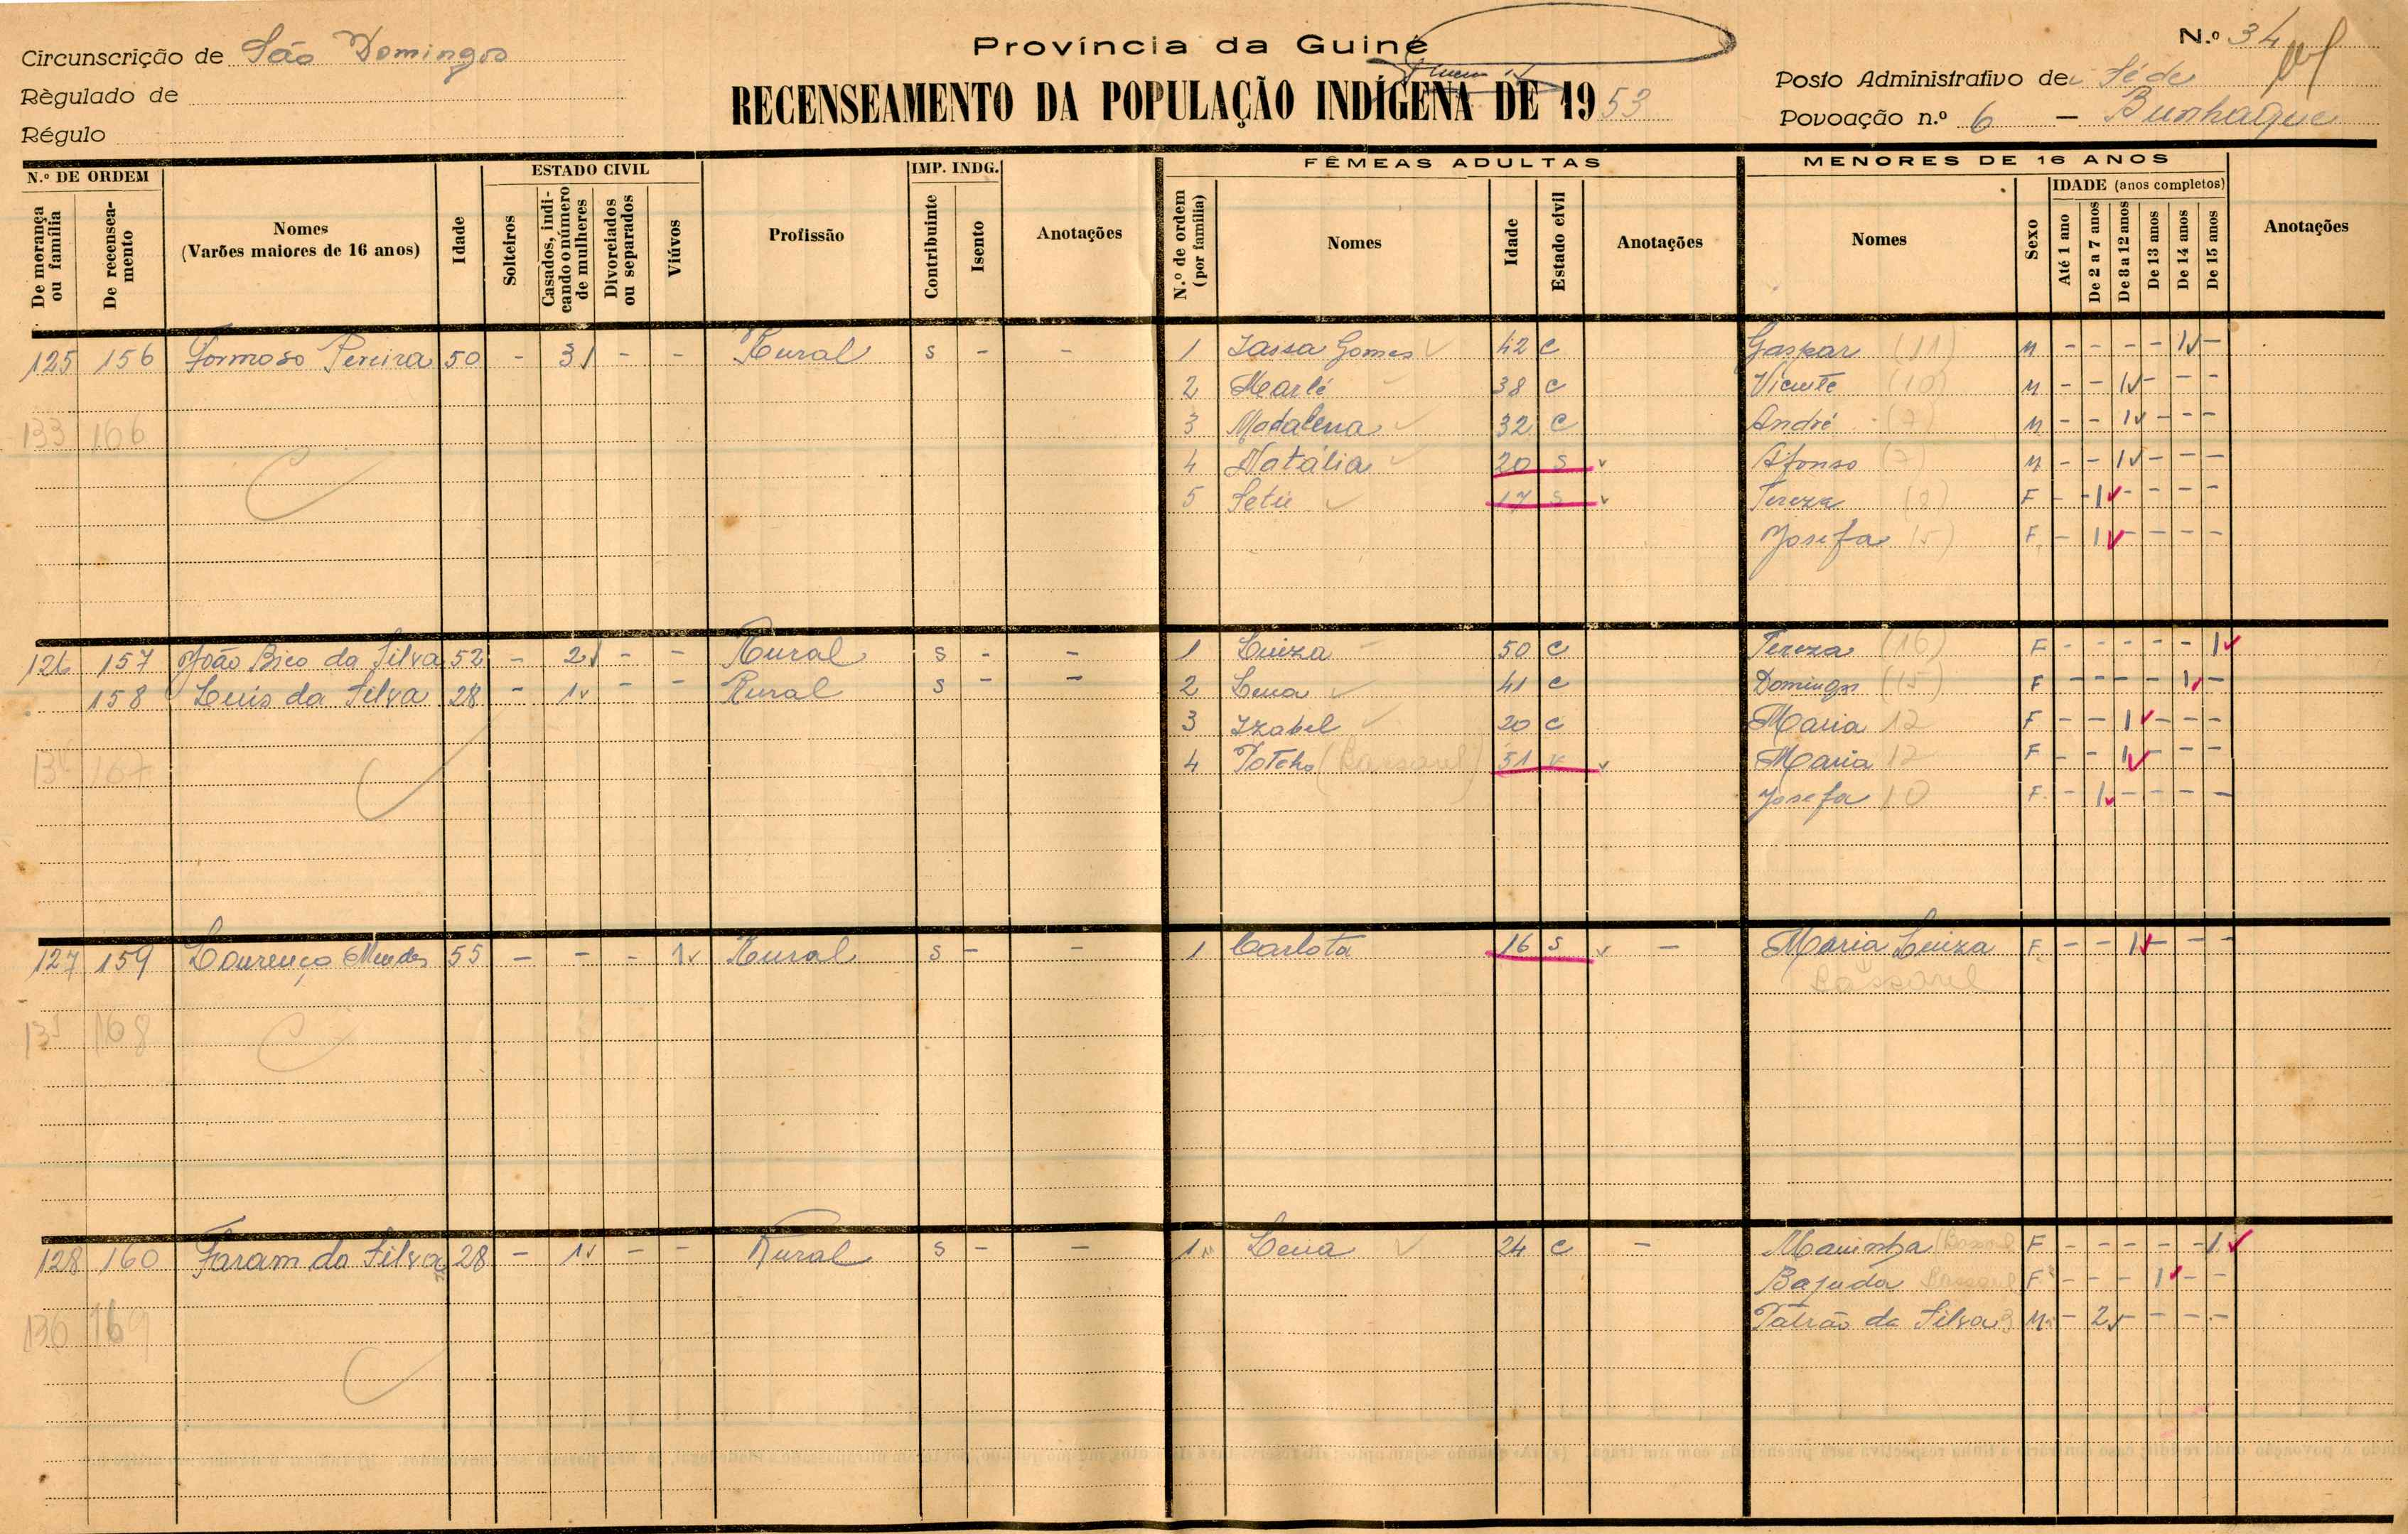 Circunscrição de São Domingos
Règulado de
Régulo
Província da Guiné
RECENSEAMENTO DA POPULAÇÃO INDÍGENA DE 1953
N.º 34
Posto Administrativo de Séde
Povoação n.º 6 — Bunhaque
N.º DE ORDEM
De morança ou família
De recenseamento
Nomes
(Varões maiores de 16 anos)
Idade
ESTADO CIVIL
Solteiros
Casados, indicando o número de mulheres
Divorciados ou separados
Viúvos
Profissão
IMP. INDG.
Contribuinte
Isento
Anotações
FÊMEAS ADULTAS
N.º de ordem (por família)
Nomes
Idade
Estado civil
Anotações
MENORES DE 16 ANOS
Nomes
Sexo
IDADE (anos completos)
Até 1 ano
De 2 a 7 anos
De 8 a 12 anos
De 13 anos
De 14 anos
De 15 anos
Anotações
125 156 Formoso Pereira 50 - 3 - - Rural s - - 1 Jassa Gomes 42 c Gaspar (11) M - - - - 1 -
2 38 c Vicente (10) M - - 1 - - -
133 166 3 Madalena 32 c André (7) M - - 1 - - -
4 Natália 20 s Afonso (7) M - - 1 - - -
5 17 s Tereza (8) F - 1 - - - -
Josefa (5) F - 1 - - - -
126 157 João Bico da Silva 52 - 2 - - Rural s - - 1 Luiza 50 c Tereza (16) F - - - - - 1
158 Luis da Silva 28 - 1 - - Rural s - - 2 Lena 41 c Domingos (15) F - - - - 1 -
3 Izabel 20 c Maria 12 F - - 1 - - -
167 4 51 v Maria 12 F - - 1 - - -
Josefa 10 F - 1 - - - -
127 159 Lourenço Mendes 55 - - - 1 Rural s - - 1 Carlota 16 s - Maria Luiza F - - 1 - - -
168
128 160 Faram da Silva 28 - 1 - - Rural s - - 1 Lena 24 c - Maninha F - - - - - 1
Bajuda F - - - 1 - -
136 169 Patrão da Silva 3 M - 2 - - - -